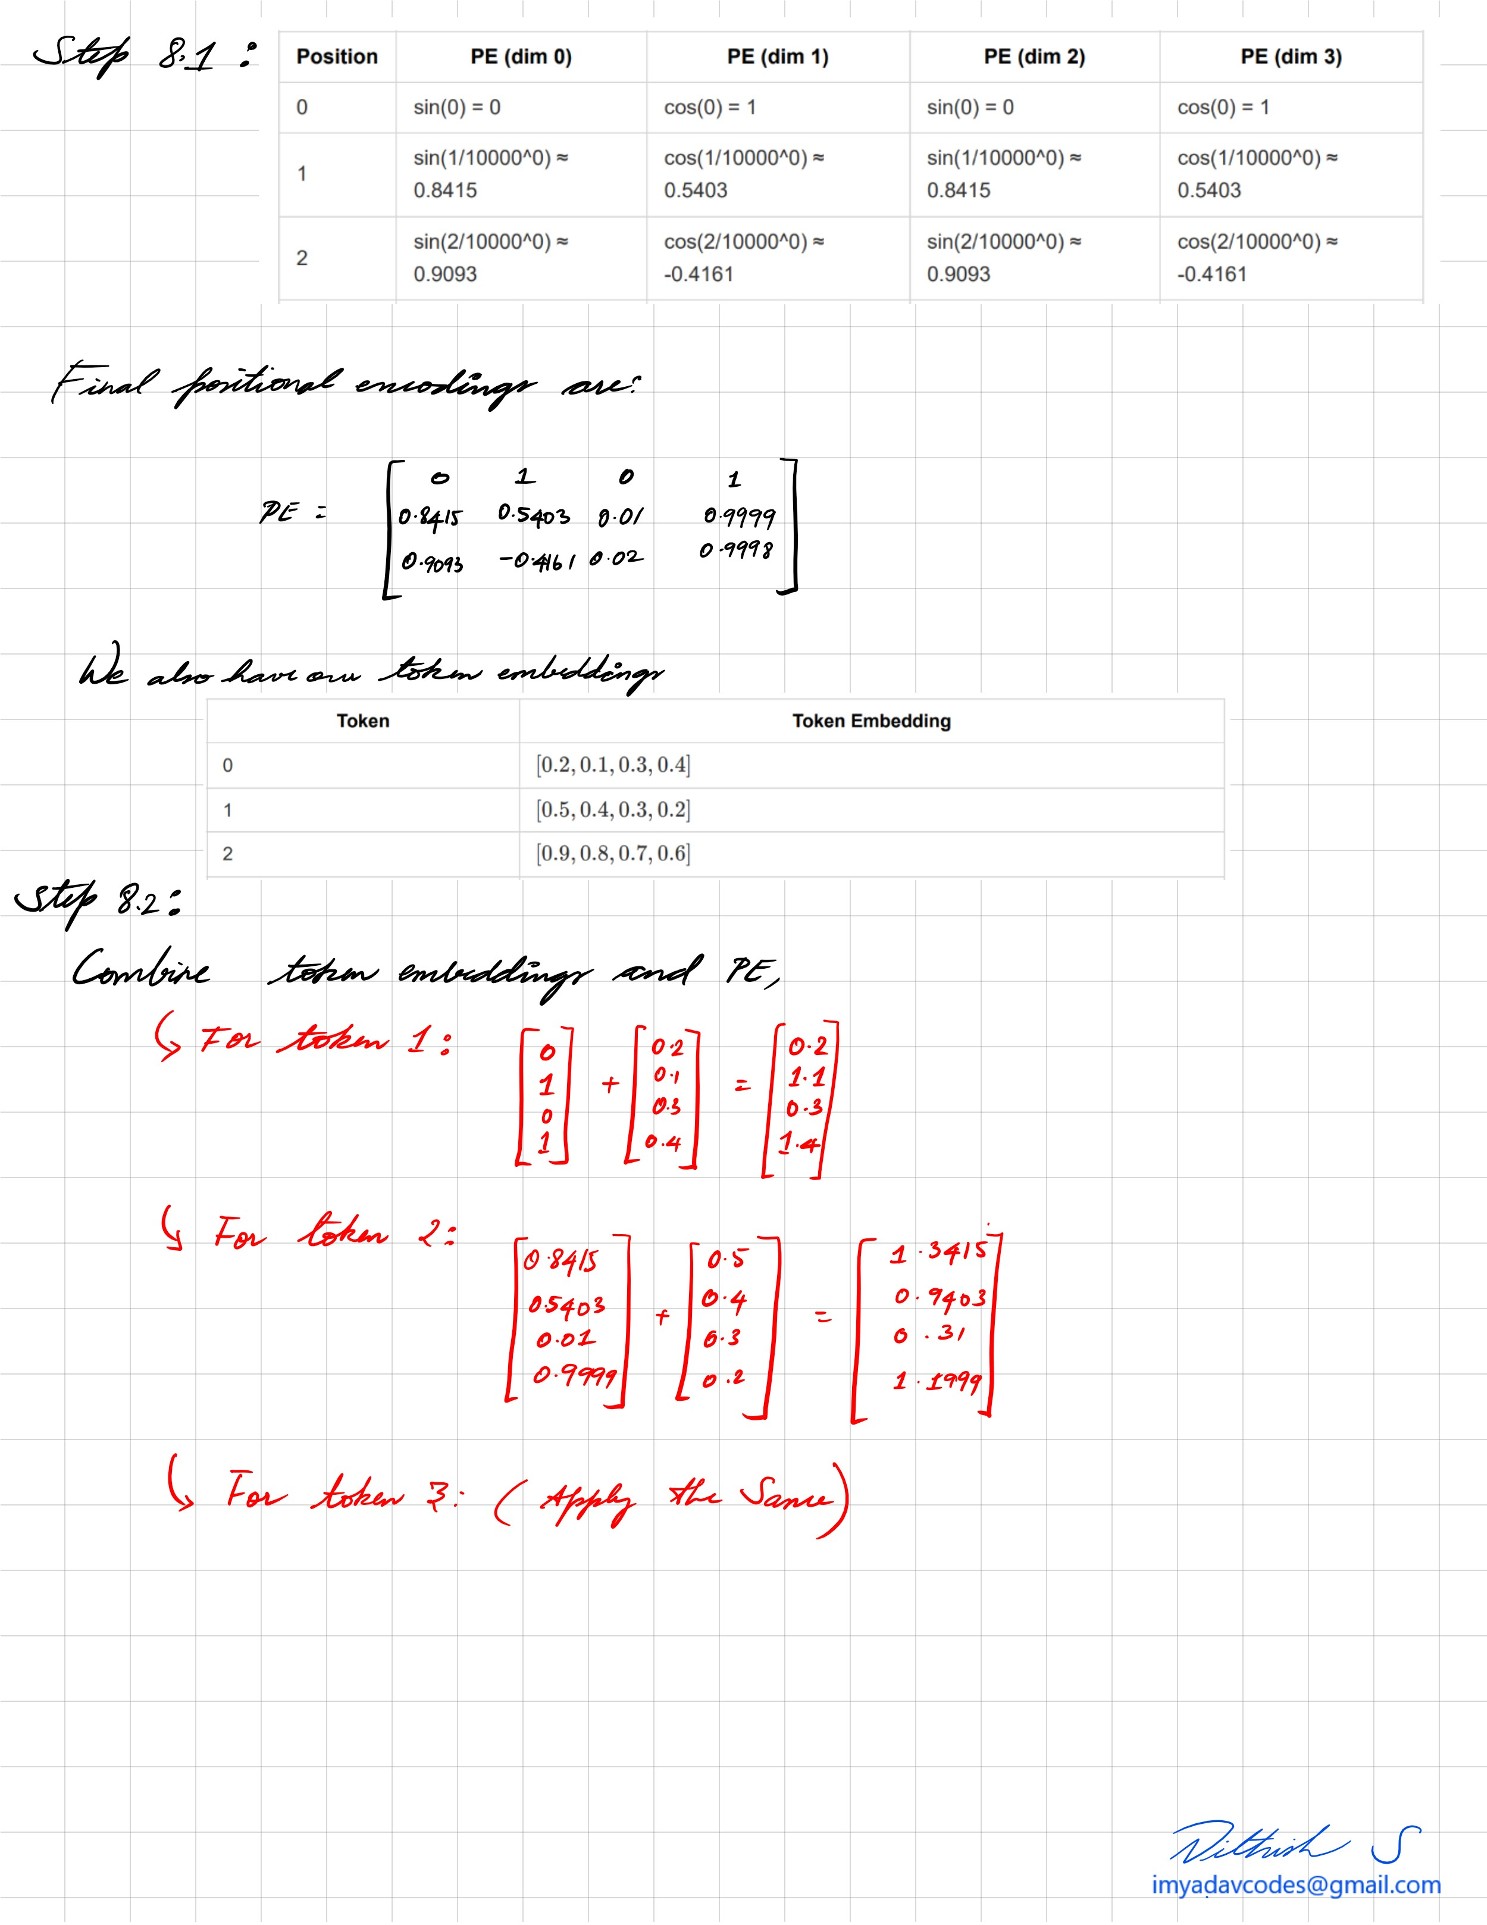 Step 8.1 :
Position PE (dim 0) PE (dim 1) PE (dim 2) PE (dim 3)
0 sin(0) = 0 cos(0) = 1 sin(0) = 0 cos(0) = 1
1 sin(1/10000^0) ≈ 0.8415 cos(1/10000^0) ≈ 0.5403 sin(1/10000^0) ≈ 0.8415 cos(1/10000^0) ≈ 0.5403
2 sin(2/10000^0) ≈ 0.9093 cos(2/10000^0) ≈ -0.4161 sin(2/10000^0) ≈ 0.9093 cos(2/10000^0) ≈ -0.4161
Final positional encodings are:
0 1 0 1
PE = 0.8415 0.5403 0.01 0.9999
0.9093 -0.4161 0.02 0.9998
We also have our token embeddings
Token Token Embedding
0 [0.2, 0.1, 0.3, 0.4]
1 [0.5, 0.4, 0.3, 0.2]
2 [0.9, 0.8, 0.7, 0.6]
Step 8.2 :
Combine token embeddings and PE,
↳ For token 1 :
0 0.2 0.2
1 + 0.1 = 1.1
0 0.3 0.3
1 0.4 1.4
↳ For token 2 :
0.8415 0.5 1.3415
0.5403 + 0.4 = 0.9403
0.01 0.3 0.31
0.9999 0.2 1.1999
↳ For token 3 : (Apply the Same)
Nithish S
imyadavcodes@gmail.com